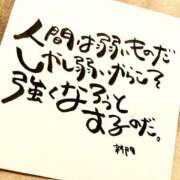 人間は弱いものだ
しかし弱いからこそ
強くなろうと
するのだ。